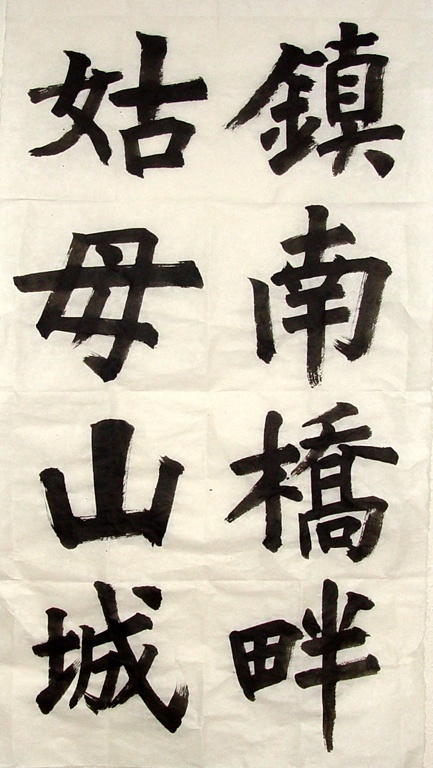 鎮南橋畔
姑母山城